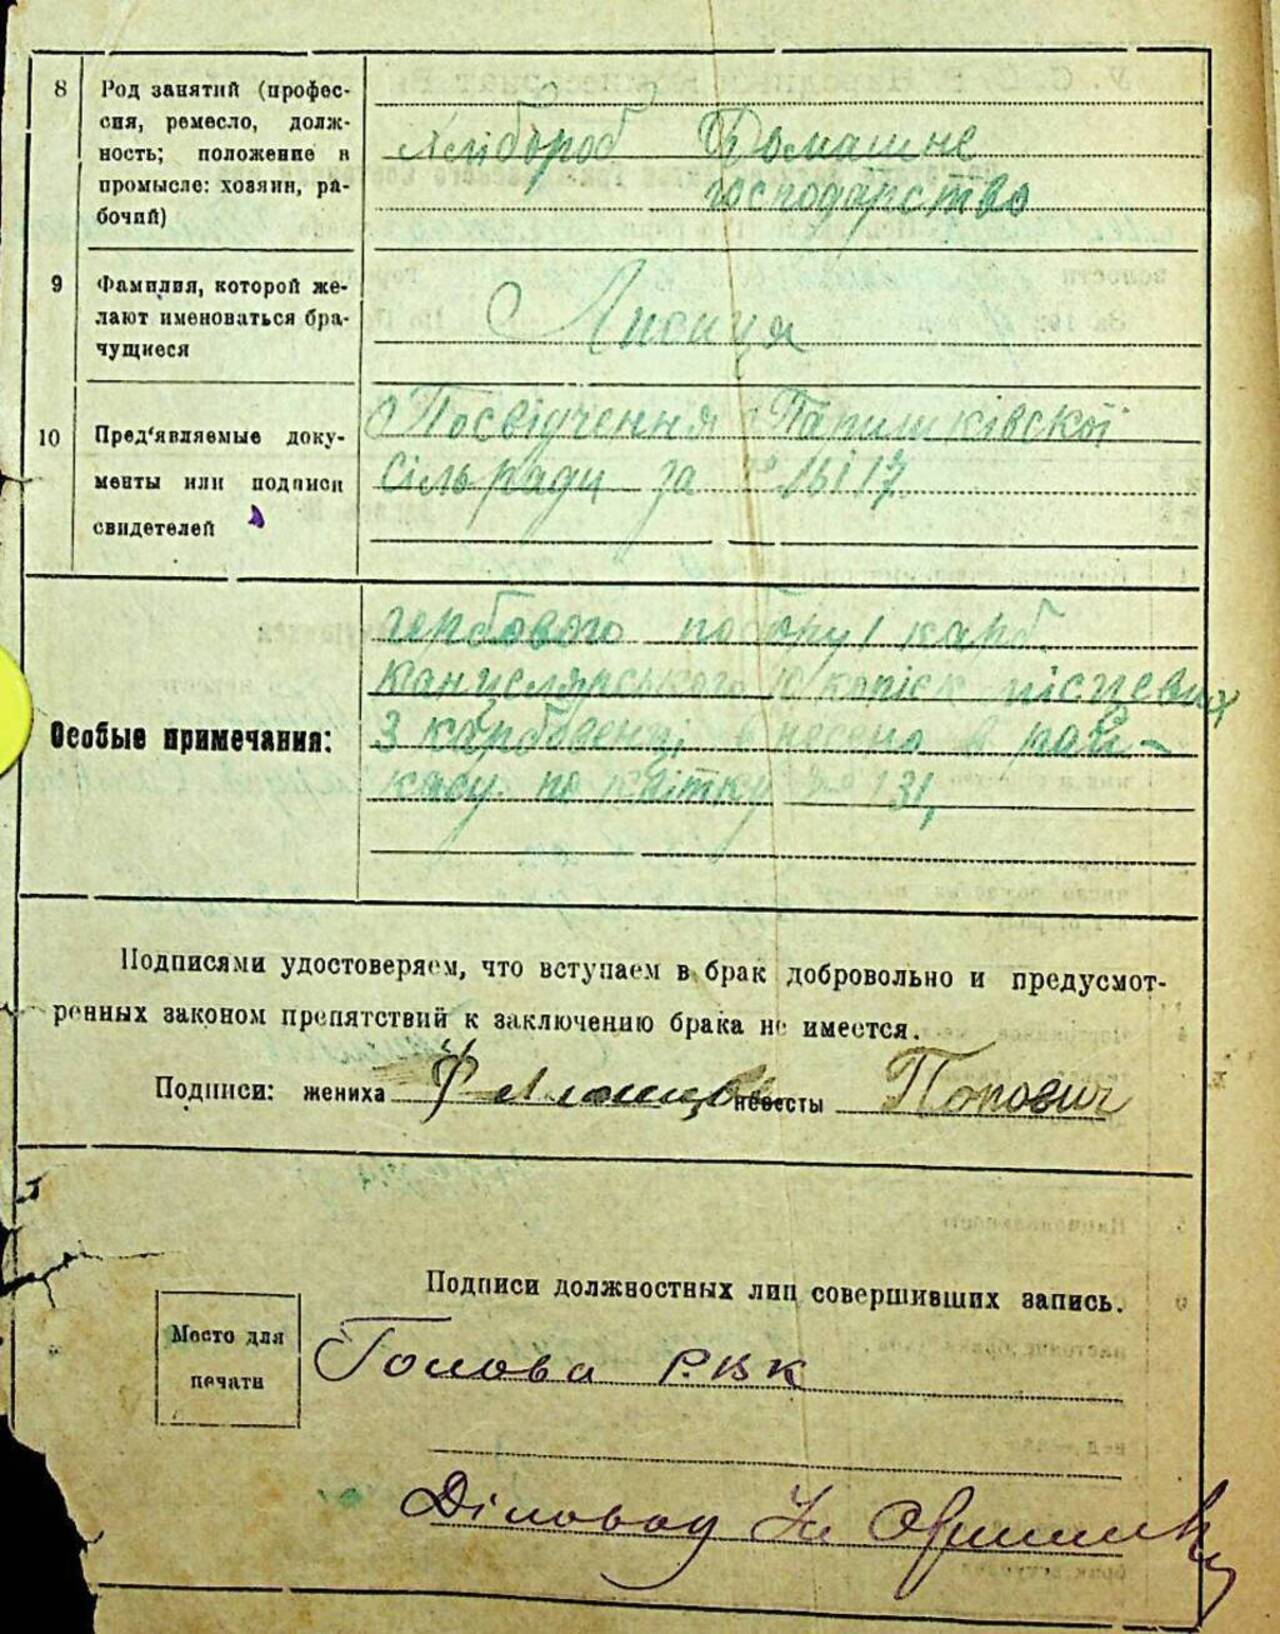 8
Род занятий (профес-
сия, ремесло, долж-
ность; положение в
промысле: хозяин, ра-
бочий)
Хлібороб Домашнє
господарство
9
Фамилия, которой же-
лают именоваться бра-
чущиеся
Лисиця
10
Пред'являемые доку-
менты или подписи
свидетелей
Посвідчення
сільради за № 16 і 17
Особые примечания:
гербового побору 1 карб.
канцелярського 10 копієк місцевих
3 карбованці внесено в рай-
касу по квітку № 131,
Подписями удостоверяем, что вступаем в брак добровольно и предусмот-
ренных законом препятствий к заключению брака не имеется.
Подписи: жениха невесты Попович
Подписи должностных лиц совершивших запись.
Место для
печати
Голова РВК
Діловод